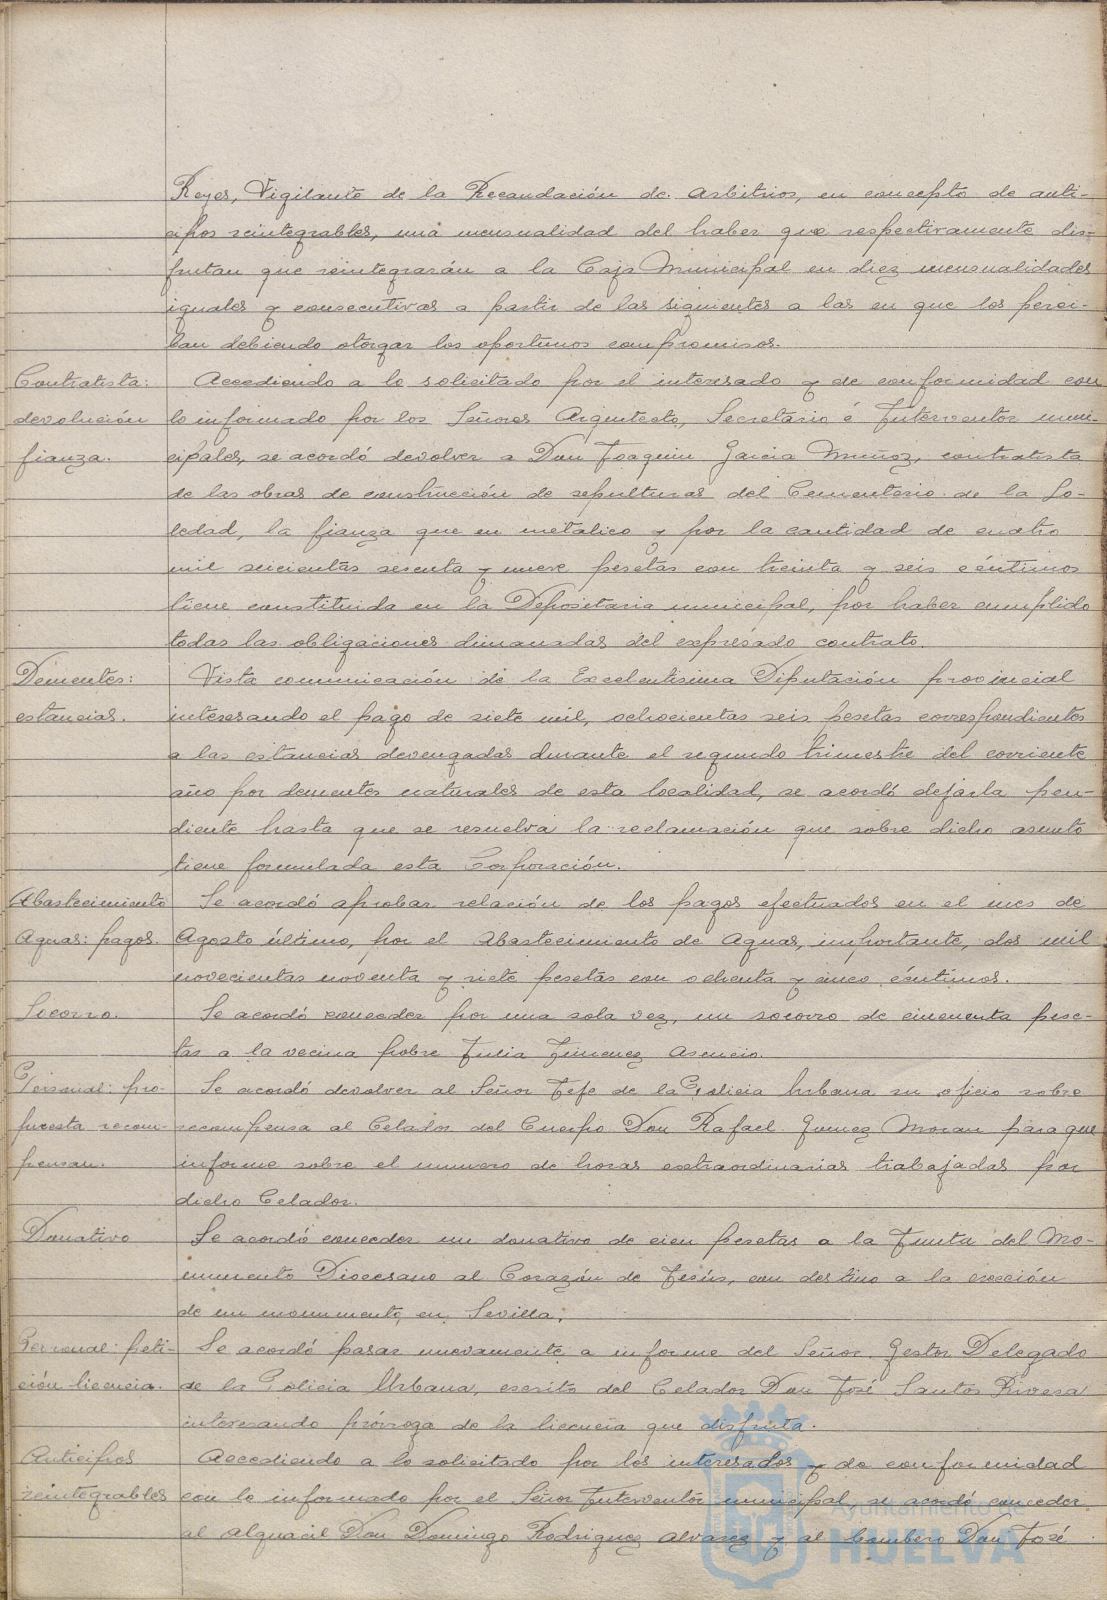 Reyes, Vigilante de la Recaudación de Arbitrios, en concepto de anti-
cipos reintegrables, una mensualidad del haber que respectivamente dis-
frutan que reintegrarán a la Caja Municipal en diez mensualidades
iguales y consecutivas a partir de las siguientes a las en que los perci-
ban debiendo otorgar los oportunos compromisos.
Contratista: devolución fianza.
Accediendo a lo solicitado por el interesado y de conformidad con
lo informado por los Señores Arquitecto, Secretario é Interventor muni-
cipales, se acordó devolver a Don Joaquin Garcia Muñoz, contratista
de las obras de construcción de sepulturas del Cementerio de la So-
ledad, la fianza que en metálico y por la cantidad de cuatro
mil seicientas sesenta y nueve pesetas con treinta y seis céntimos
tiene constituida en la Depositaria municipal, por haber cumplido
todas las obligaciones dimanadas del expresado contrato.
Dementes: estancias.
Vista comunicación de la Excelentisima Diputación provincial
interesando el pago de siete mil, ochocientas seis pesetas correspondientes
a las estancias devengadas durante el segundo trimestre del corriente
año por dementes naturales de esta localidad, se acordó dejarla pen-
diente hasta que se resuelva la reclamación que sobre dicho asunto
tiene formulada esta Corporación.
Abastecimiento Aguas: pagos.
Se acordó aprobar relación de los pagos efectuados en el mes de
Agosto último, por el Abastecimiento de Aguas, importante, dos mil
novecientas noventa y siete pesetas con ochenta y cinco céntimos.
Socorro.
Se acordó conceder por una sola vez, un socorro de cincuenta pese-
tas a la vecina pobre Julia Jimenez Asencio.
Personal: pro-
puesta recom-
pensan.
Se acordó devolver al Señor Jefe de la Policia Urbana su oficio sobre
recompensa al Celador del Cuerpo Don Rafael Gomez Moran para que
informe sobre el numero de horas extraordinarias trabajadas por
dicho Celador.
Donativo
Se acordó conceder un donativo de cien pesetas a la Junta del Mo-
numento Diocesano al Corazón de Jesús, con destino a la erección
de un monumento en Sevilla.
Personal: peti-
ción licencia.
Se acordó pasar nuevamente a informe del Señor Gestor Delegado
de la Policia Urbana, escrito del Celador Don José Santos Rivera
interesando prórroga de la licencia que disfruta.
Anticipos reintegrables
Accediendo a lo solicitado por los interesados y de conformidad
con lo informado por el Señor Interventor municipal, se acordó conceder
al Alguacil Don Domingo Rodriguez Alvarez y al bombero Don José
Ayuntamiento de
HUELVA